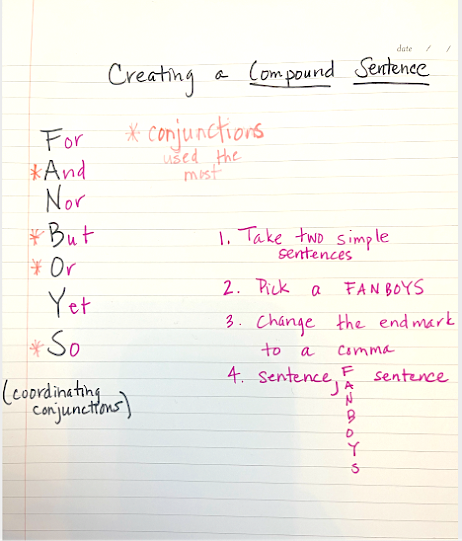 date / /
Creating a Compound Sentence
For
* conjunctions
used the
most
*And
Nor
*But
*Or
Yet
*So
(coordinating
conjunctions)
1. Take two simple
sentences
2. Pick a FANBOYS
3. Change the endmark
to a comma
4. sentence, F sentence
A
N
B
O
Y
S